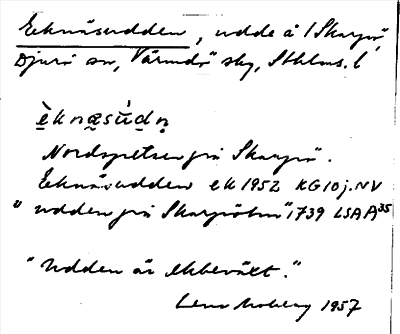 Eknäsudden, udde å Skarpö,
Djurö sn, Värmdö skg, Sthlms. l
èknæsùdṇ
Nordspetsen på Skarpö.
Eknäsudden ek 1952 KG 10 j. NV
"udden på Skarpöhn" 1739 LSA A35
"Udden är ekbeväxt."
1957